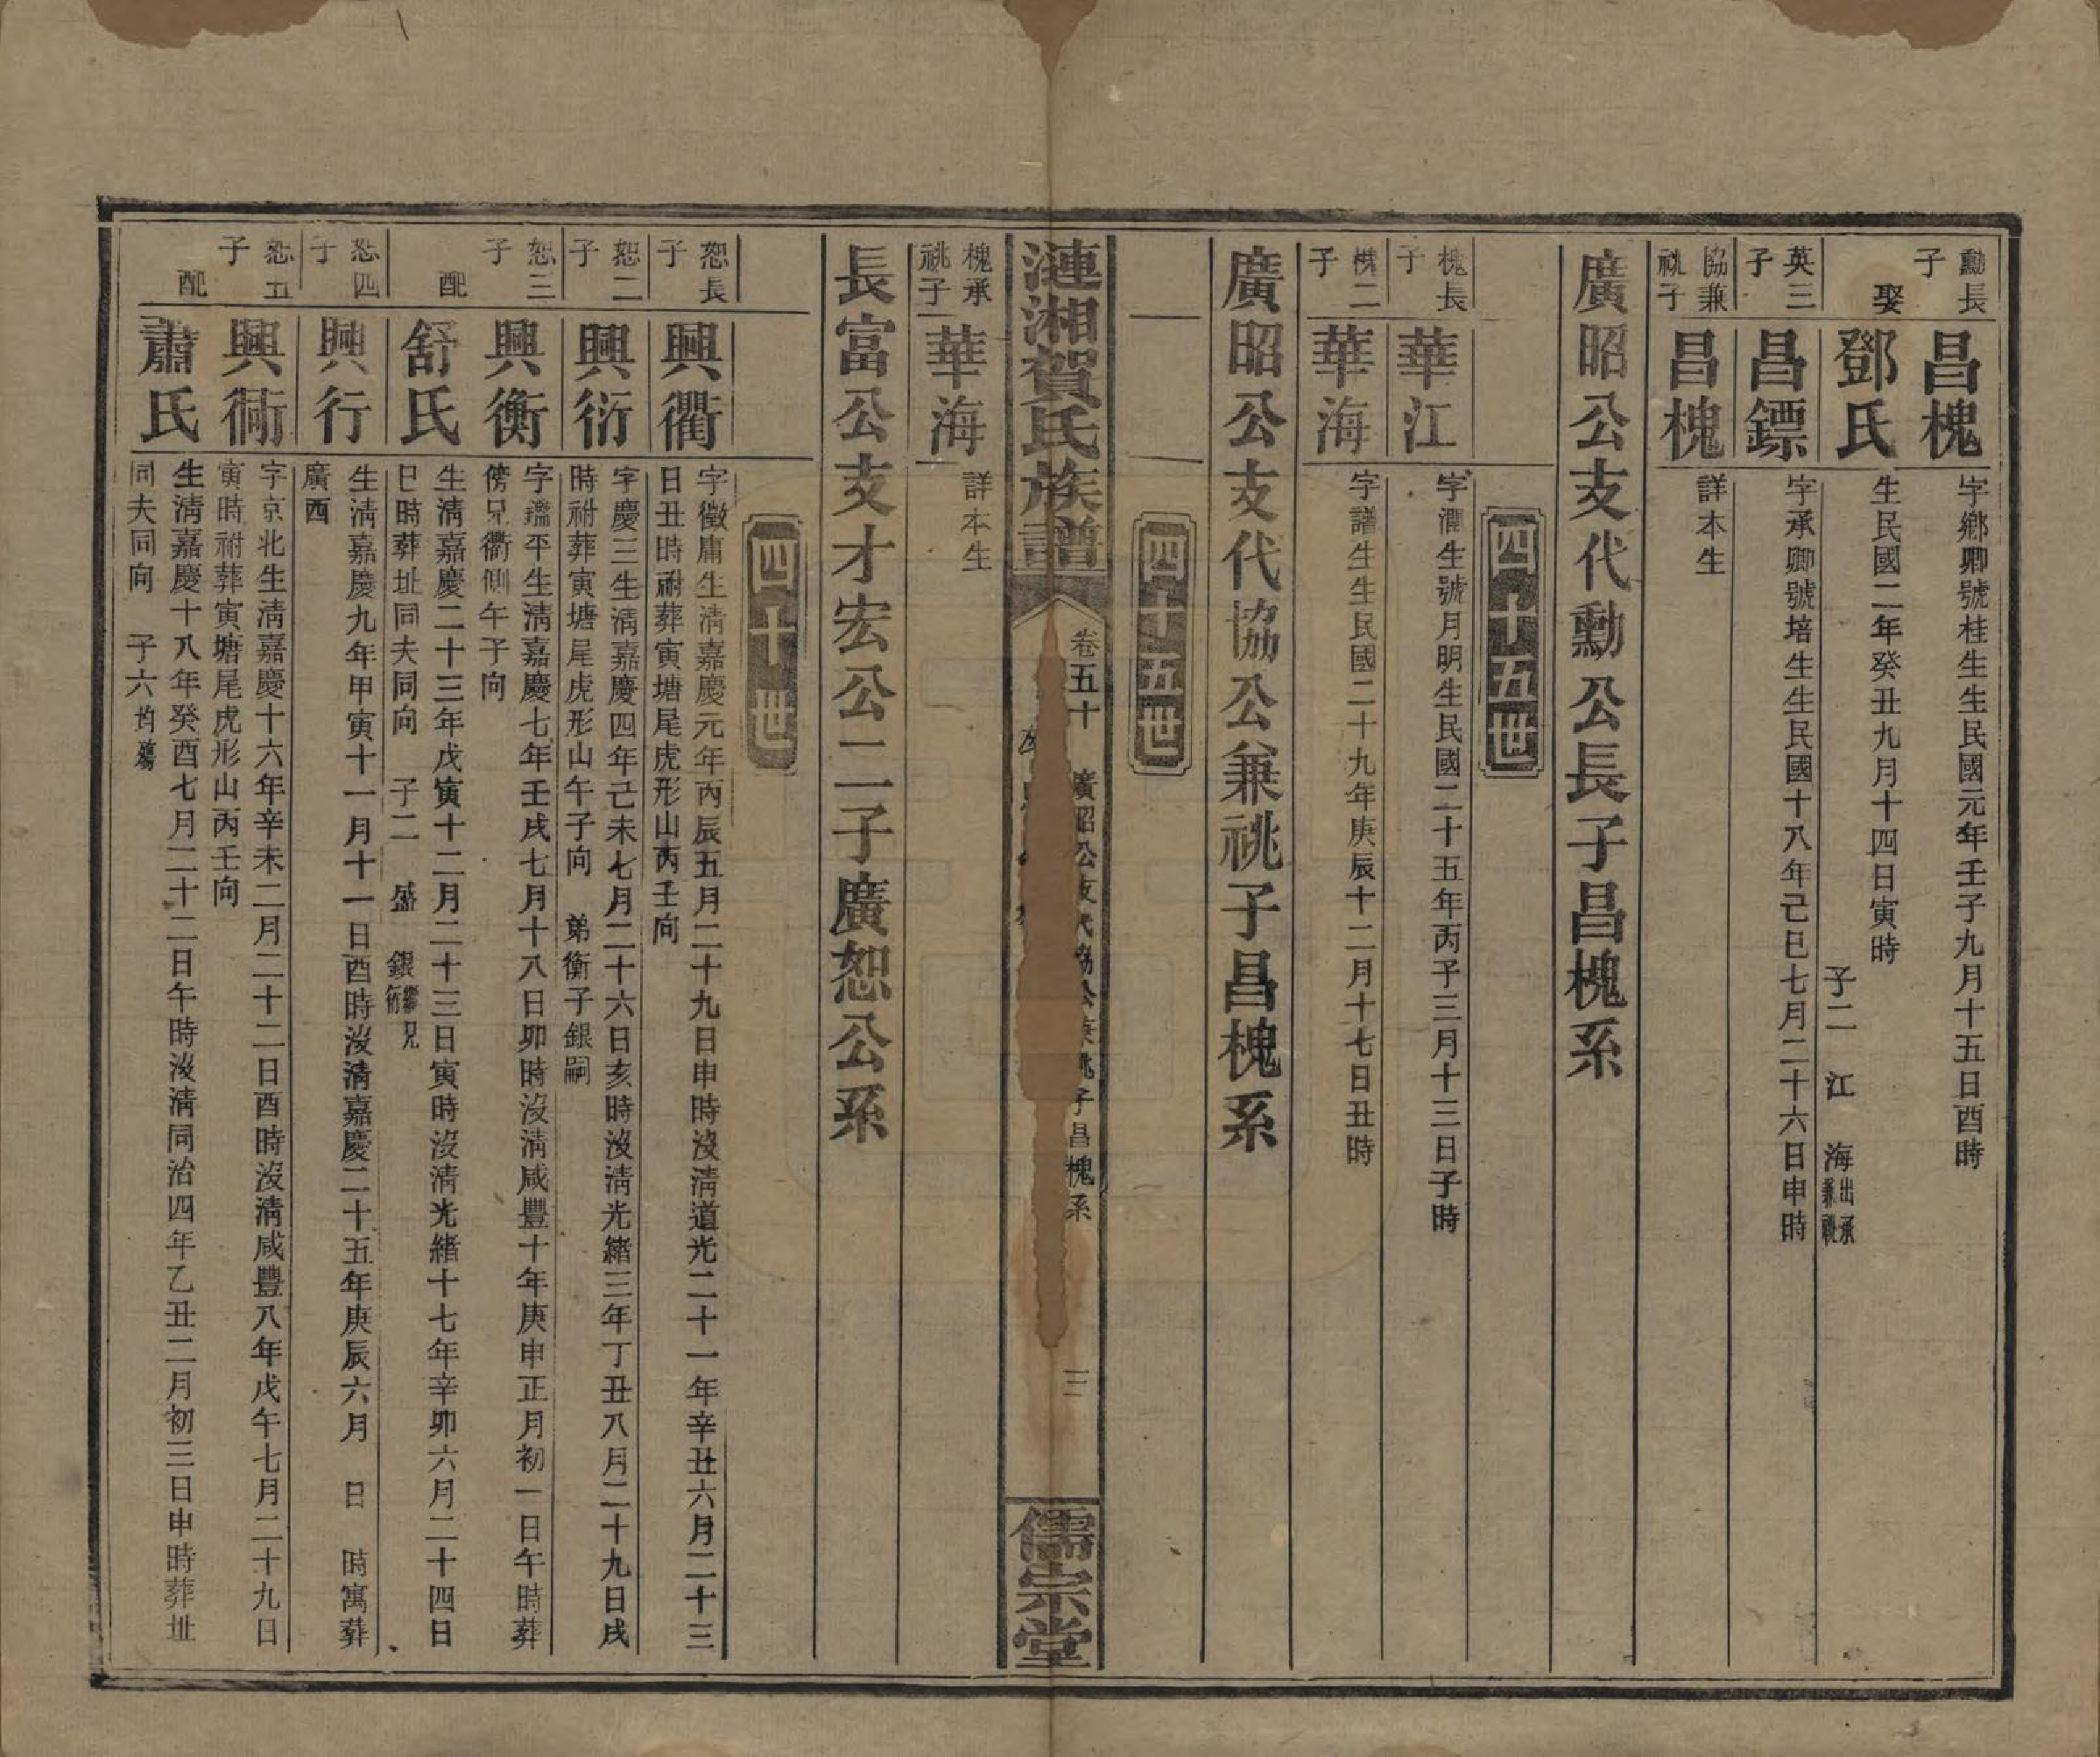 勳長子
昌槐
字鄉卿號桂生生民國元年壬子九月十五日酉時
娶
鄧氏
生民國二年癸丑九月十四日寅時
子二　江　海出承兼祧
英三子
昌鏢
字承卿號培生生民國十八年己巳七月二十六日申時
協兼祧子
昌槐
詳本生
廣昭公支代勳公長子昌槐系
四十五世
槐長子
華江
字潤生號月明生民國二十五年丙子三月十三日子時
槐二子
華海
字譜生生民國二十九年庚辰十二月十七日丑時
廣昭公支代協公兼祧子昌槐系
四十五世
漣湘賀氏族譜
卷五十
廣昭公支代協公兼祧子昌槐系
三
儒宗堂
槐承祧子
華海
詳本生
長富公支才宏公二子廣恕公系
四十世
恕長子
興衢
字徵庸生清嘉慶元年丙辰五月二十九日申時沒清道光二十一年辛丑六月二十三
日丑時祔葬寅塘尾虎形山丙壬向
恕二子
興衍
字慶三生清嘉慶四年己未七月二十六日亥時沒清光緒三年丁丑八月二十九日戌
時祔葬寅塘尾虎形山午子向　弟衡子銀嗣
恕三子
興衡
字鑑平生清嘉慶七年壬戌七月十八日卯時沒清咸豐十年庚申正月初一日午時葬
傍兄衢側午子向
配
舒氏
生清嘉慶二十三年戊寅十二月二十三日寅時沒清光緒十七年辛卯六月二十四日
巳時葬址同夫同向　子二　盛　銀繼兄衍
恕四子
興行
生清嘉慶九年甲寅十一月十一日酉時沒清嘉慶二十五年庚辰六月　日　時寓葬
廣西
恕五子
興衕
字京北生清嘉慶十六年辛未二月二十二日酉時沒清咸豐八年戊午七月二十九日
寅時祔葬寅塘尾虎形山丙壬向
配
蕭氏
生清嘉慶十八年癸酉七月二十二日午時沒清同治四年乙丑二月初三日申時葬址
同夫同向　子六均殤